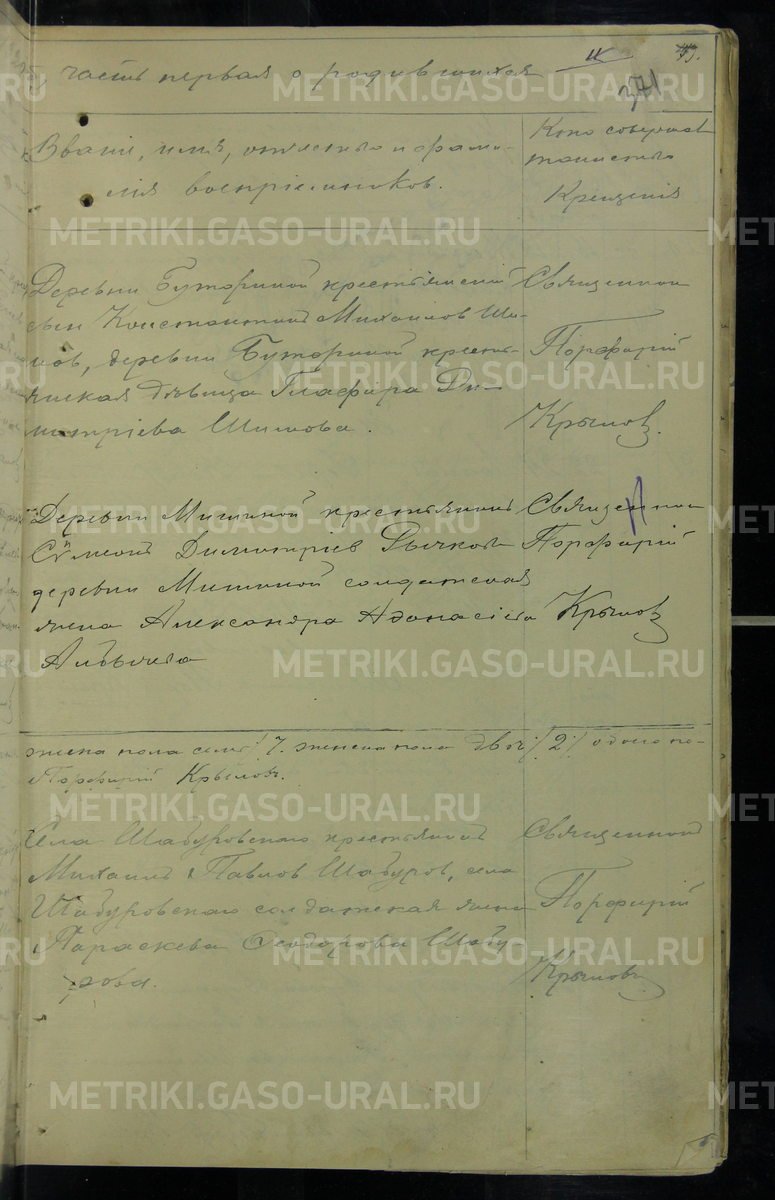 часть первая о родившихся
371
Званіе, имя, отчество и фами-
лія воспріемниковъ.
Кто совершал
таинство
Крещенія
Деревни Бутыриной крестьянскій
сынъ Константинъ Михаиловъ Ши-
повъ, деревни Бутыриной кресть-
янская дѣвица Глафира Ди-
митріева Шипова.
Священникъ
Порфирій
Крыловъ.
Деревни Мишиной крестьянинъ
Сѵмеонъ Димитріев Рычковъ
деревни Мишиной солдатская
жена Александра Афонасіева
Священник
Порфирій
Крыловъ
пола семь / 7. женска пола двое / 2 /
Порфирій Крыловъ.
Села Шабуровскаго крестьянинъ
Михаилъ Павлов Шабуров, села
Шабуровскаго солдатская жена
Параскева Феодорова Шабу-
рова.
Священникъ
Порфирій
Крыловъ
METRIKI.GASO-URAL.RU